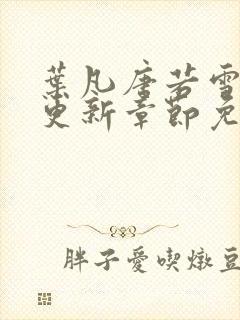 葉凡唐若雪
更新章節免
胖子愛喫燉豆